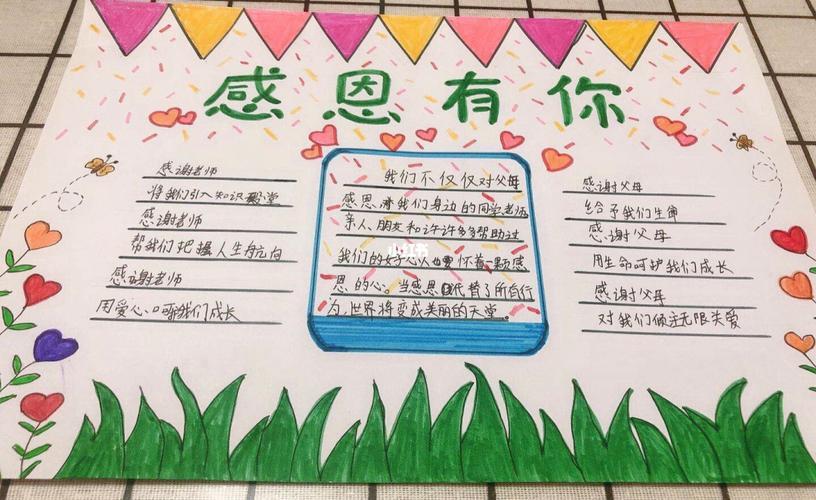 感恩有你
感谢老师
将我们引入知识殿堂
感谢老师
帮我们把握人生航向
感谢老师
用爱心呵护我们成长
我们不仅仅对父母
感恩,对我们身边的同学老师
亲人、朋友和许许多多帮助过
我们的好心人 要怀着一颗感
恩的心。当感恩代替了所有行
为,世界将变成美丽的天堂。
小红书
感谢父母
给予我们生命
感谢父母
用生命呵护我们成长
感谢父母
对我们倾注无限关爱